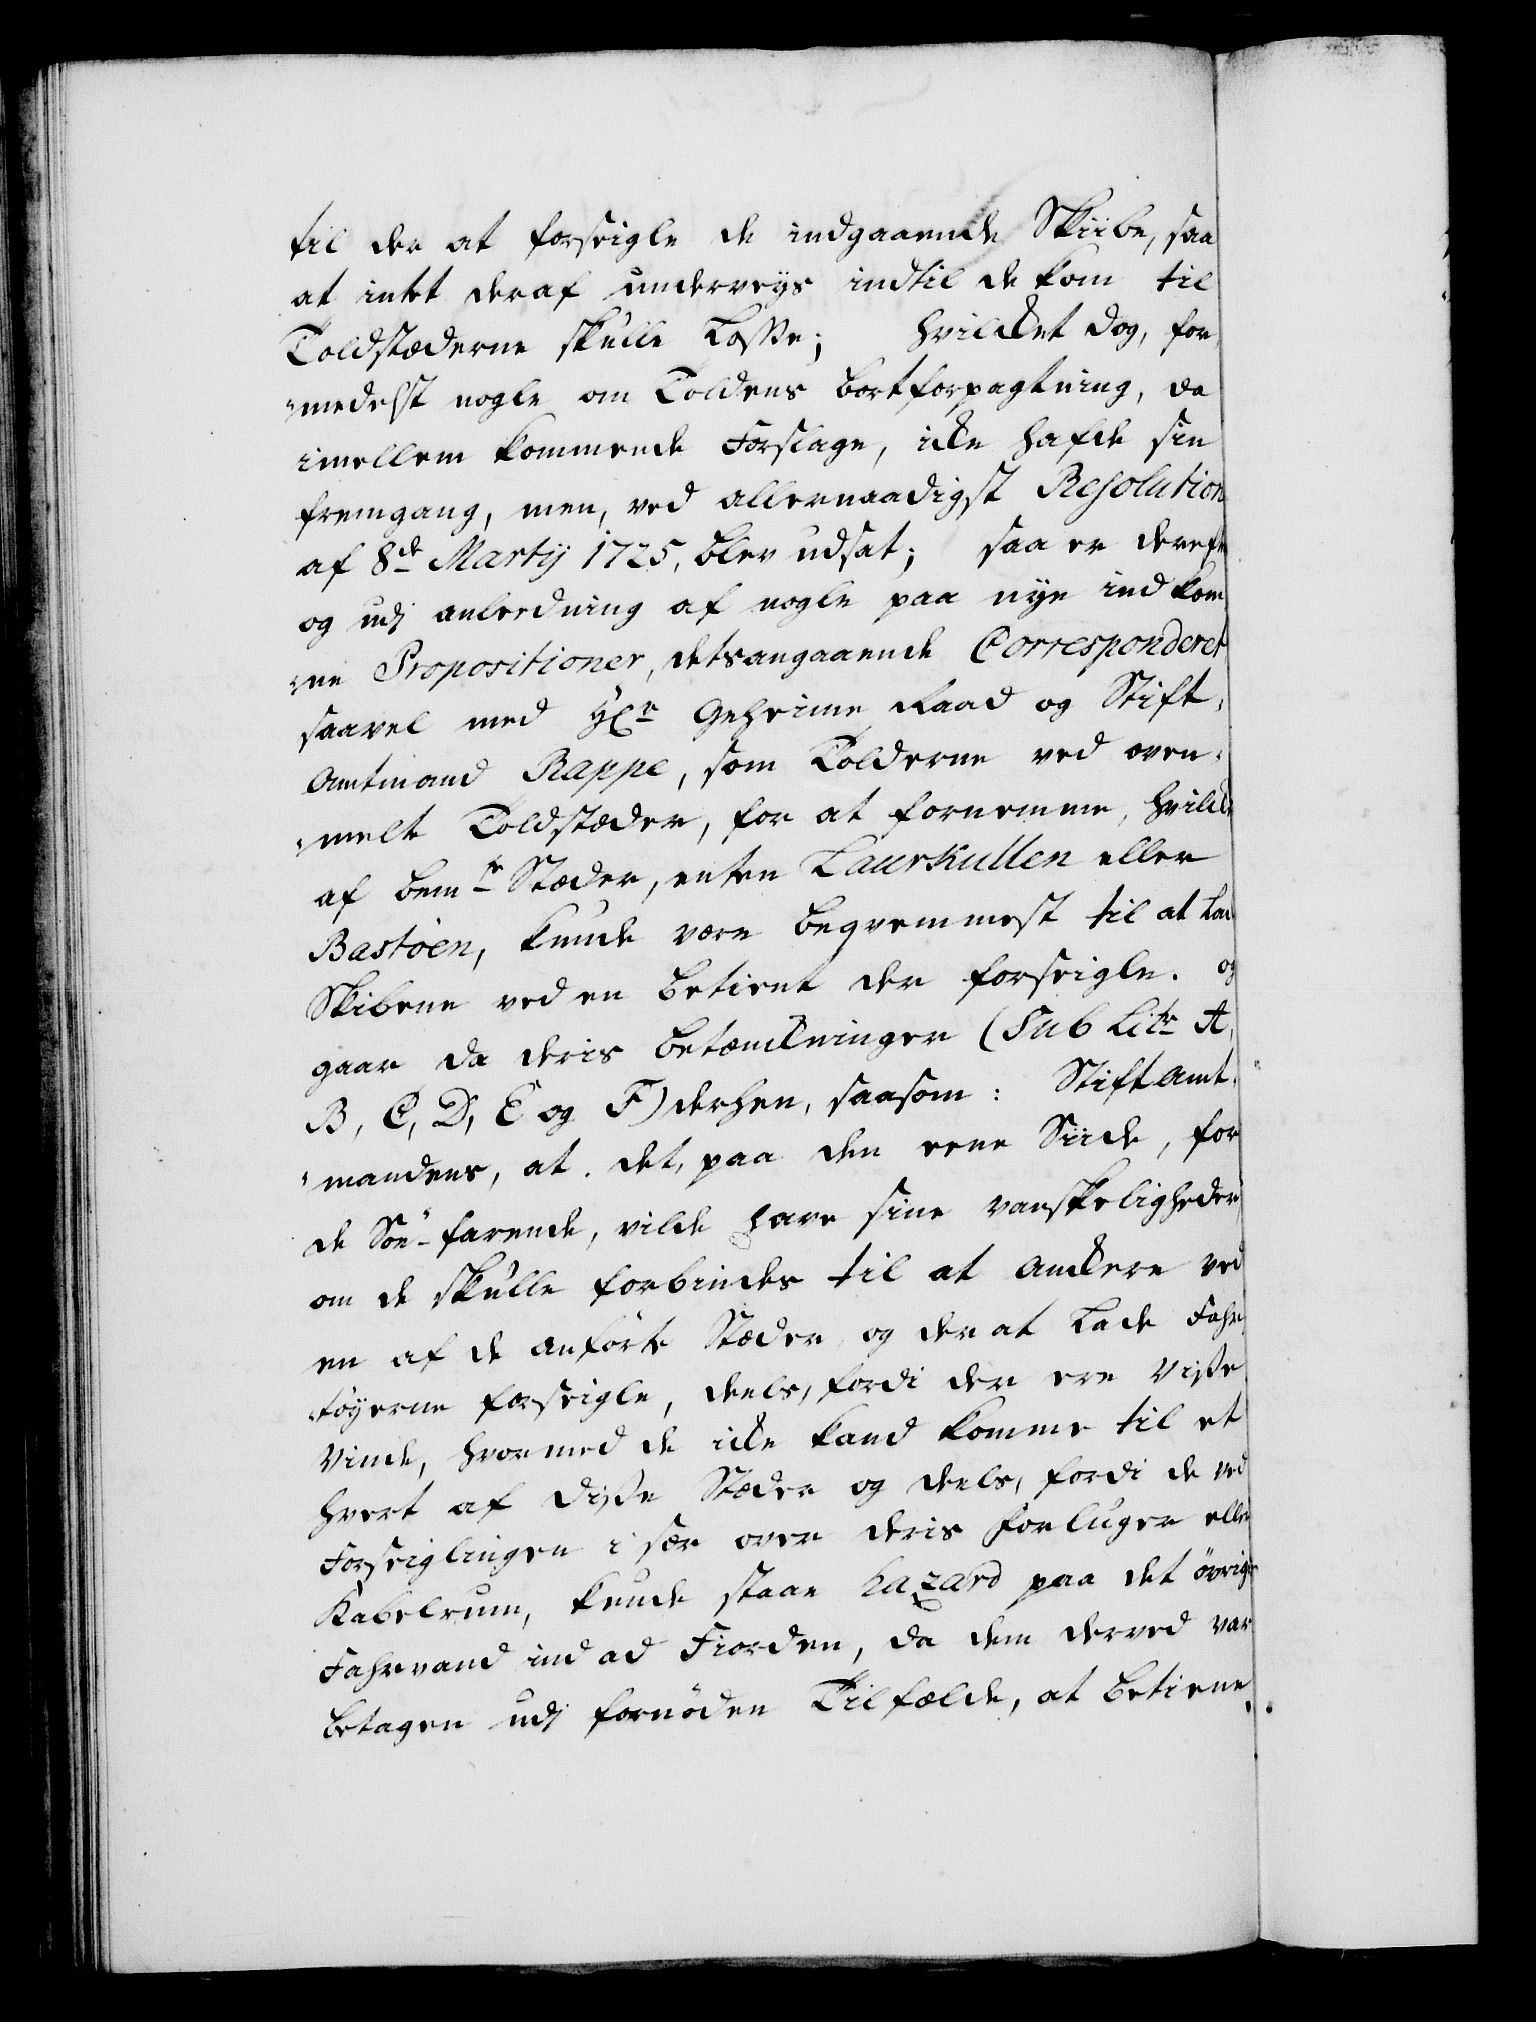 til der at forseigle de indgaaende Skiibe, saa
at intet deraf underveys indtil de kom til
Toldstæderne skulle Losse; hvilket dog, for
„medelst nogle om Toldens bortforpagtning, da
imellem kommende Forslage, icke hafde sin
fremgang, men, ved allernaadigst Resolution
af 8de Martij 1725, blev udsat; saa er dereft
og udj anleedning af nogle paa nye ind kom
„ne Propositioner, detsangaaende Corresponderet
saavel med Geheime Raad og Stift,
Amtmand Rappe, som Tolderne ved oven„
„melte Toldstæder, for at fornemme, hvilcke
af bemte Stæder, enten Laurkullen eller
Bastøen, kunde være beqvemmest til at Lad
Skibene ved en betient der forseigle. og
gaar da deris betænckninger (Sub Litr A,
B, C, D, E og F) derhen, saasom: Stift amt„
„mandens, at det, paa den eene Siide, for
de Søe-farende, vilde have sine vanskeligheder
om de skulle forbindes til at anckere ved
en af de anførte Stæder og der at Lade Fahr
tøyerne forseigle, deels, fordi der ere Visse
Vinde, hvormed de icke kand komme til et
hvert af disse Stæder og deels, fordi de ved
Forseiglingen i sær over deris Forluger eller
Kabelrum, kunde staae hazard paa det øvrige
Fahrvand ind ad Fiorden, da dem derved var
betagen udj fornøden Tilfælde, at betiene